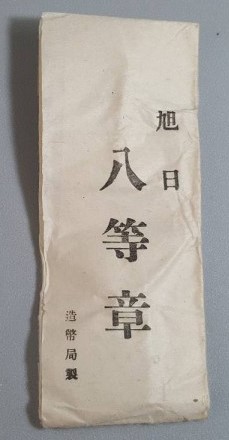 旭日
八等章
造幣局製